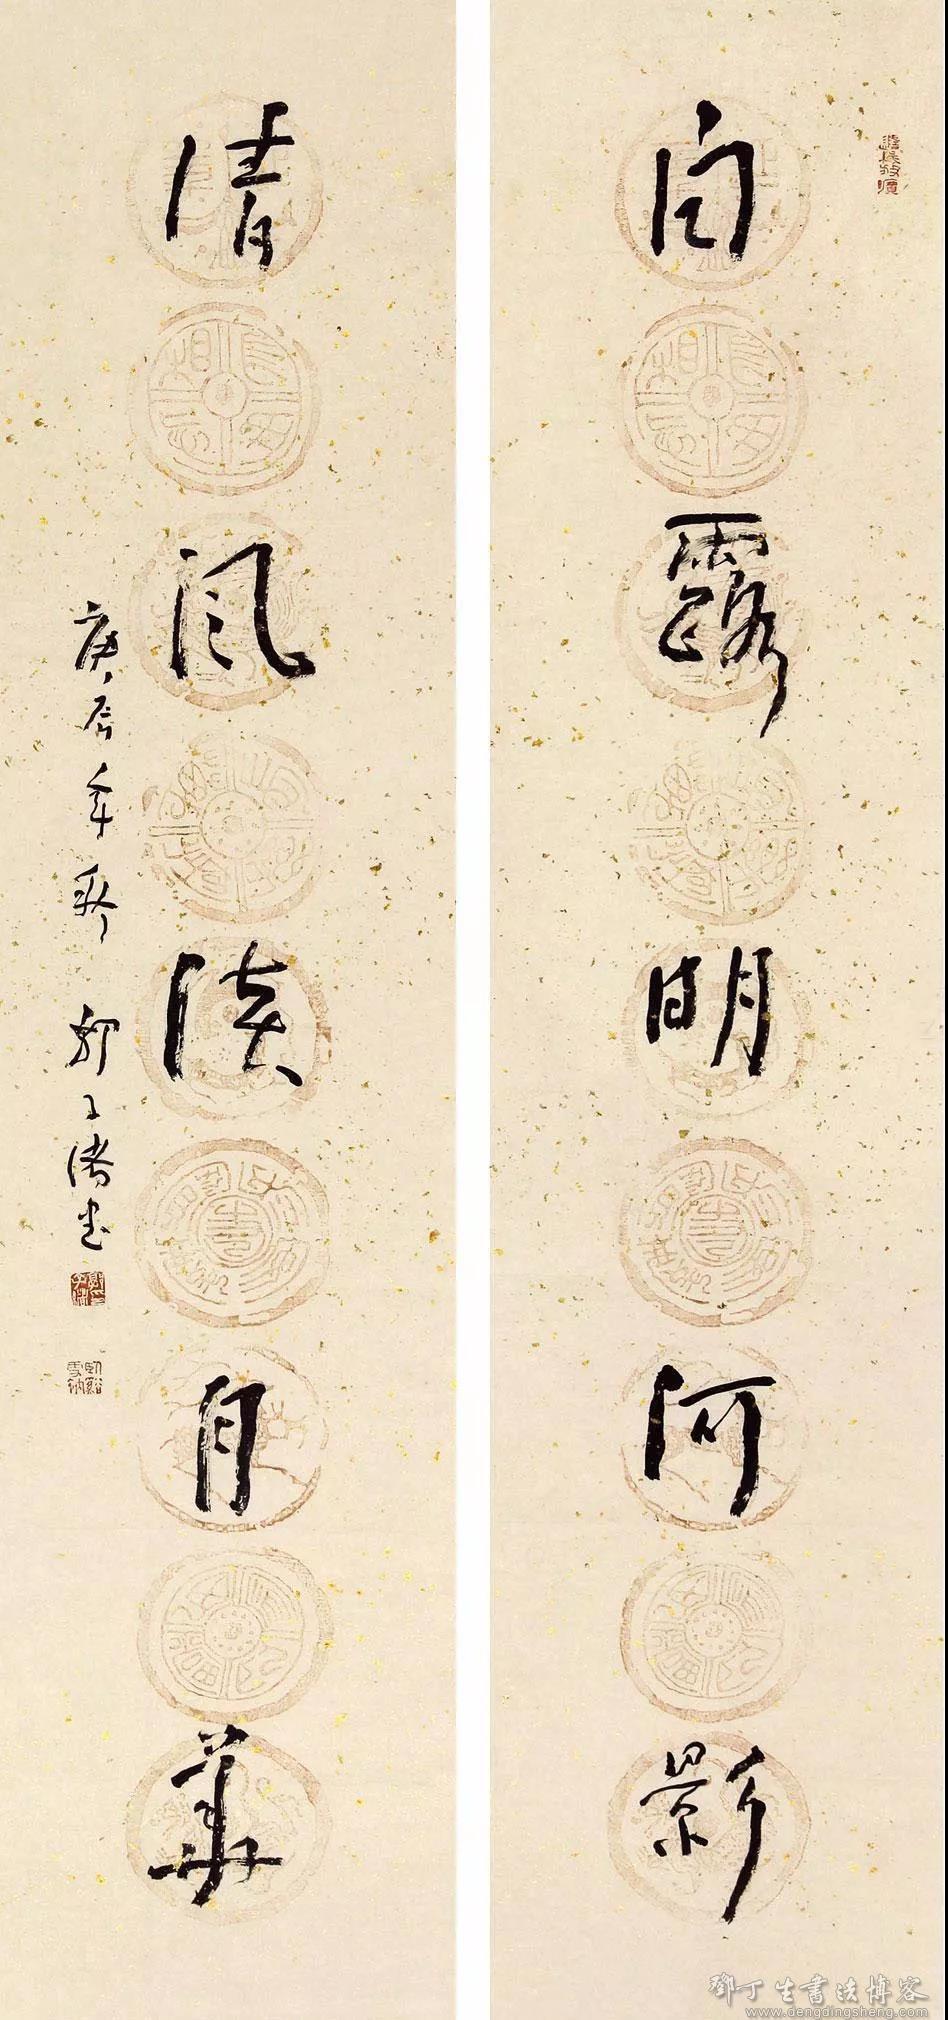 白露明河影
清風淡月華
庚辰年秋 郭子緒書
鄧丁生書法博客
www.dengdingsheng.com